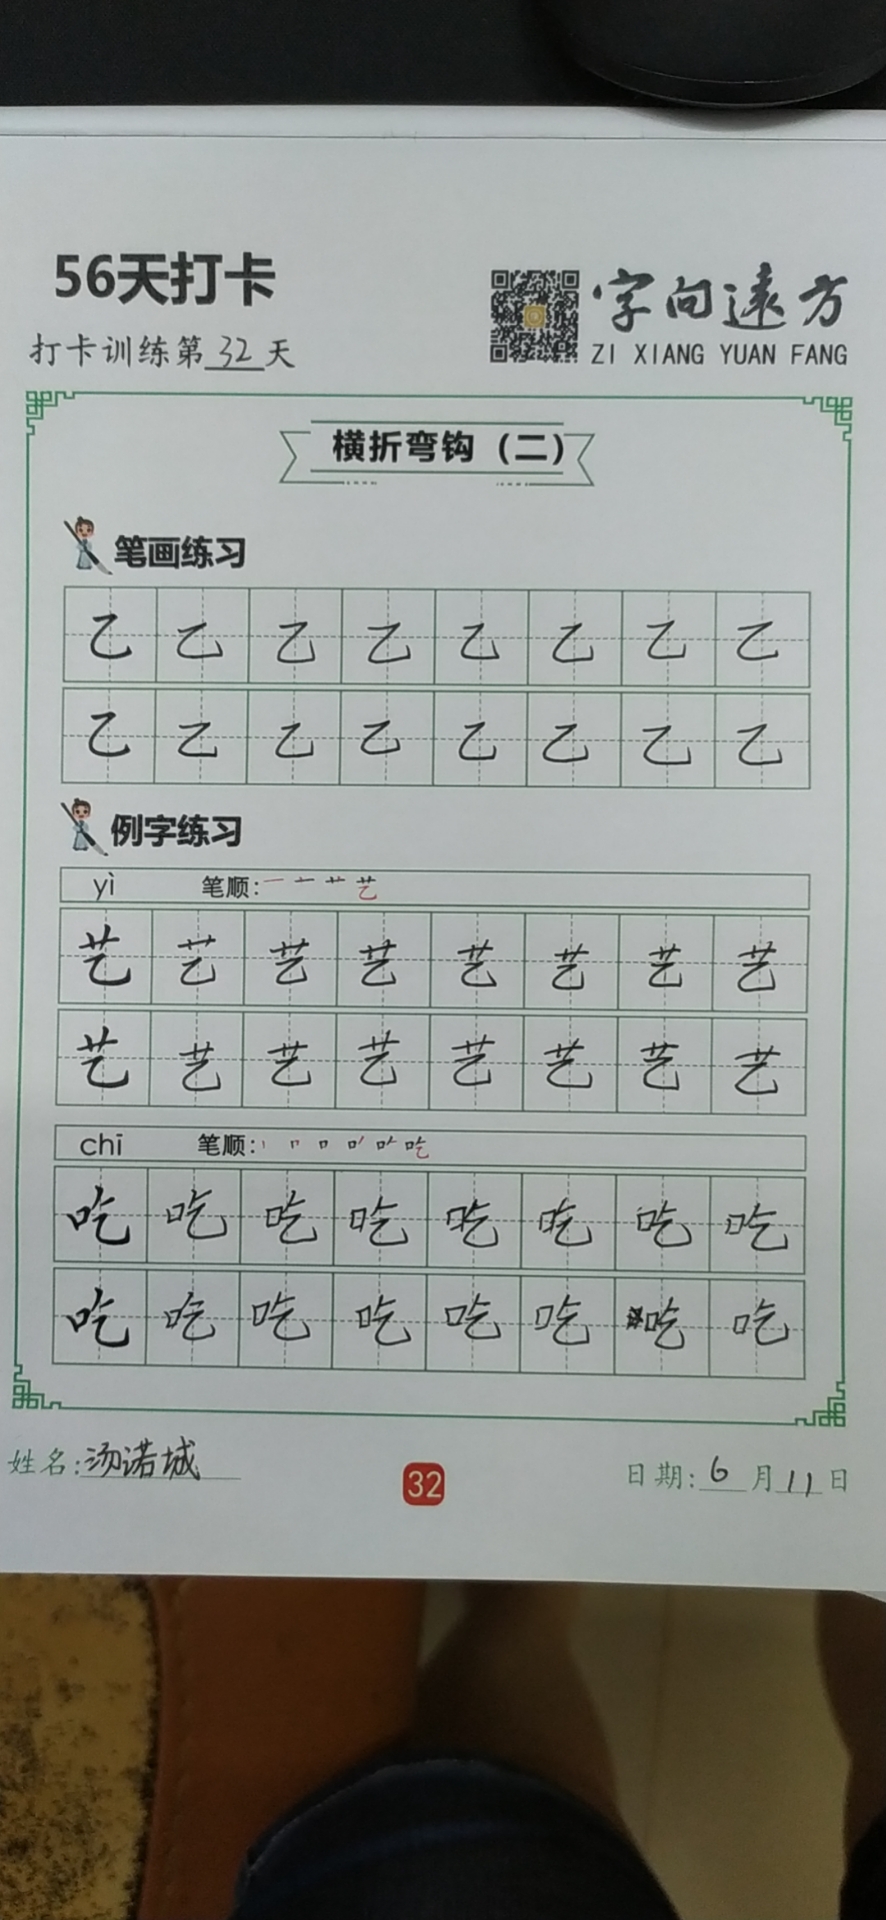 56天打卡
字向远方
打卡训练第32天
ZI XIANG YUAN FANG
横折弯钩（二）
笔画练习
乙乙乙乙乙乙乙乙
乙乙乙乙乙乙乙乙
例字练习
yì 笔顺：一 十 艹 艺
艺艺艺艺艺艺艺艺
艺艺艺艺艺艺艺艺
chī 笔顺：丨 𠃍 口 吃
吃吃吃吃吃吃吃吃
吃吃吃吃吃吃吃吃
姓名：汤诺城
32
日期：6月11日